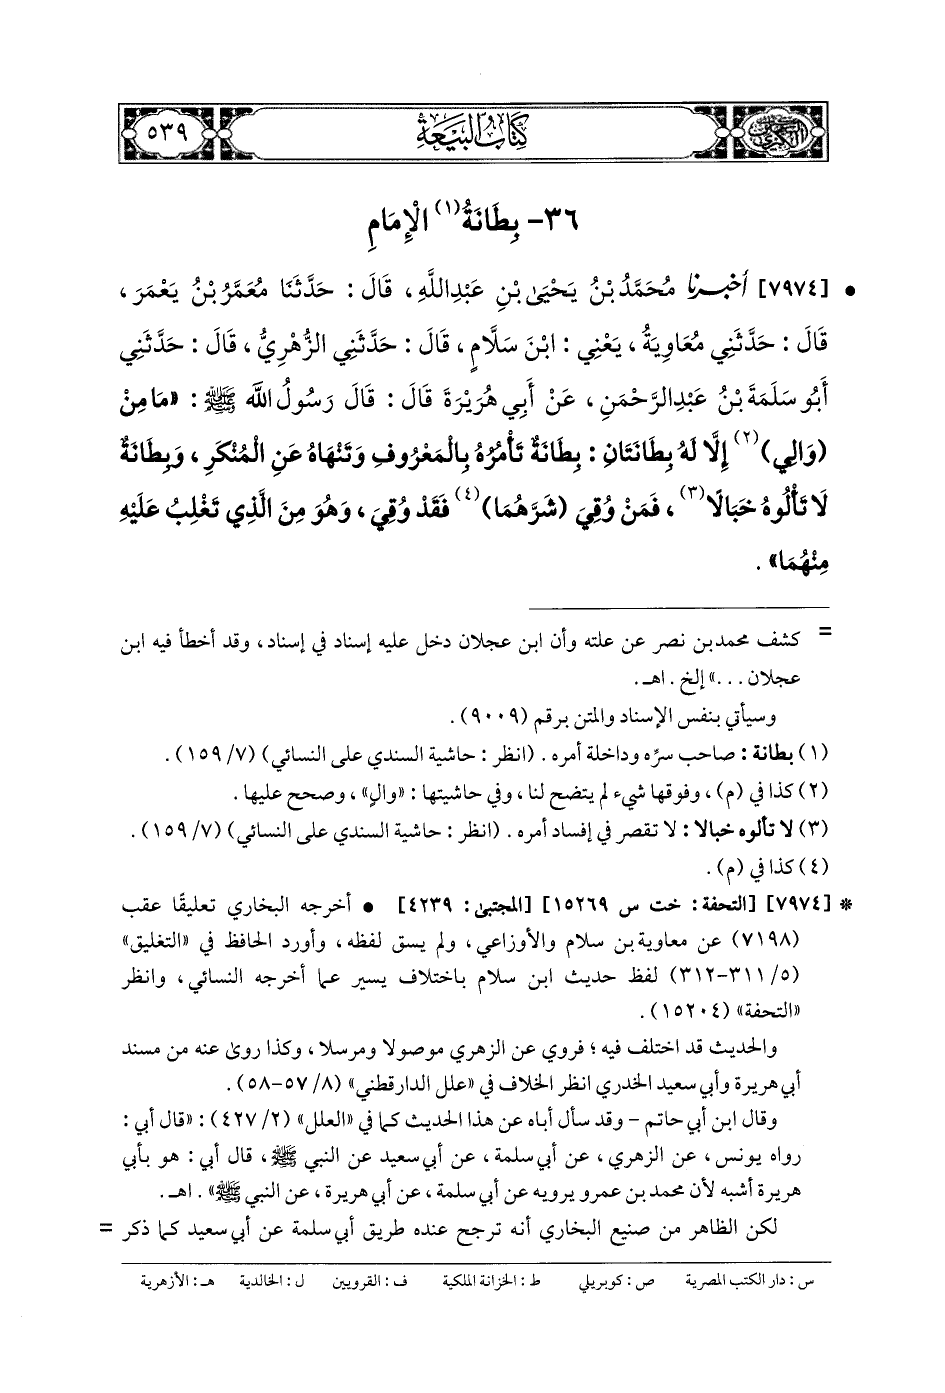 ٥٣٩
كتاب البيعة
٣٦- بِطَانَةُ(١) الْإِمَامِ
• [٧٩٧٤] أخبرنا مُحَمَّدُ بْنُ يَحْيَىٰ بْنِ عَبْدِاللَّهِ، قَالَ: حَدَّثَنَا مُعَمَّرُ بْنُ يَعْمَرَ،
قَالَ: حَدَّثَنِي مُعَاوِيَةُ، يَعْنِي: ابْنَ سَلَّامٍ، قَالَ: حَدَّثَنِي الزُّهْرِيُّ، قَالَ: حَدَّثَنِي
أَبُو سَلَمَةَ بْنُ عَبْدِالرَّحْمَنِ، عَنْ أَبِي هُرَيْرَةَ قَالَ: قَالَ رَسُولُ اللَّه ﷺ: «مَا مِنْ
(وَالِي)(٢) إِلَّا لَهُ بِطَانَتَانِ: بِطَانَةٌ تَأْمُرُهُ بِالْمَعْرُوفِ وَتَنْهَاهُ عَنِ الْمُنْكَرِ، وَبِطَانَةٌ
لَا تَأْلُوهُ خَبَالًا(٣)، فَمَنْ وُقِيَ (شَرَّهُمَا)(٤) فَقَدْ وُقِيَ، وَهُوَ مِنَ الَّذِي تَغْلِبُ عَلَيْهِ
مِنْهُمَا».
= كشف محمد بن نصر عن علته وأن ابن عجلان دخل عليه إسناد في إسناد، وقد أخطأ فيه ابن
عجلان ...» إلخ. اهـ.
وسيأتي بنفس الإسناد والمتن برقم (٩٠٠٩).
(١) بطانة: صاحب سرِّه وداخلة أمره. (انظر: حاشية السندي على النسائي) (٧/ ١٥٩).
(٢) كذا في (م)، وفوقها شيء لم يتضح لنا، وفي حاشيتها: «والٍ»، وصحح عليها.
(٣) لا تألوه خبالا: لا تقصر في إفساد أمره. (انظر: حاشية السندي على النسائي) (٧/ ١٥٩).
(٤) كذا في (م).
* [٧٩٧٤] [التحفة: خت س ١٥٢٦٩] [المجتبى: ٤٢٣٩] • أخرجه البخاري تعليقًا عقب
(٧١٩٨) عن معاوية بن سلام والأوزاعي، ولم يسق لفظه، وأورد الحافظ في «التغليق»
(٥/ ٣١١-٣١٢) لفظ حديث ابن سلام باختلاف يسير عما أخرجه النسائي، وانظر
«التحفة» (١٥٢٠٤).
والحديث قد اختلف فيه؛ فروي عن الزهري موصولا ومرسلا، وكذا روى عنه من مسند
أبي هريرة وأبي سعيد الخدري انظر الخلاف في «علل الدارقطني» (٨/ ٥٧-٥٨).
وقال ابن أبي حاتم - وقد سأل أباه عن هذا الحديث كما في «العلل» (٢/ ٤٢٧): «قال أبي:
رواه يونس، عن الزهري، عن أبي سلمة، عن أبي سعيد عن النبي ﷺ، قال أبي: هو بأبي
هريرة أشبه لأن محمد بن عمرو يرويه عن أبي سلمة، عن أبي هريرة، عن النبي ﷺ». اهـ.
لكن الظاهر من صنيع البخاري أنه ترجح عنده طريق أبي سلمة عن أبي سعيد كما ذكر =
س: دار الكتب المصرية ص: كوبريلي ط: الخزانة الملكية ف: القرويين ل: الخالدية هـ: الأزهرية